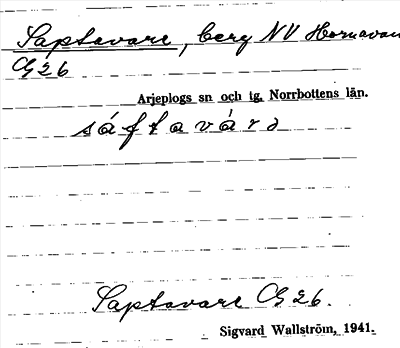 Saptavare, berg NV Hornavan
G26
Arjeplogs sn och tg, Norrbottens län.
sáftavárə
Saptavare G26.
Sigvard Wallström, 1941.